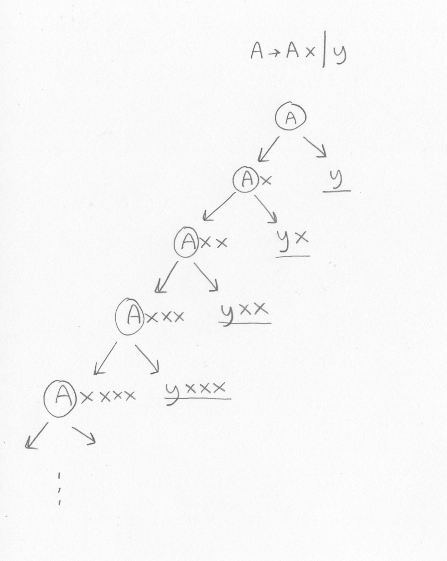 A → A x | y
A
A x y
A x x y x
A x x x y x x
A x x x x y x x x